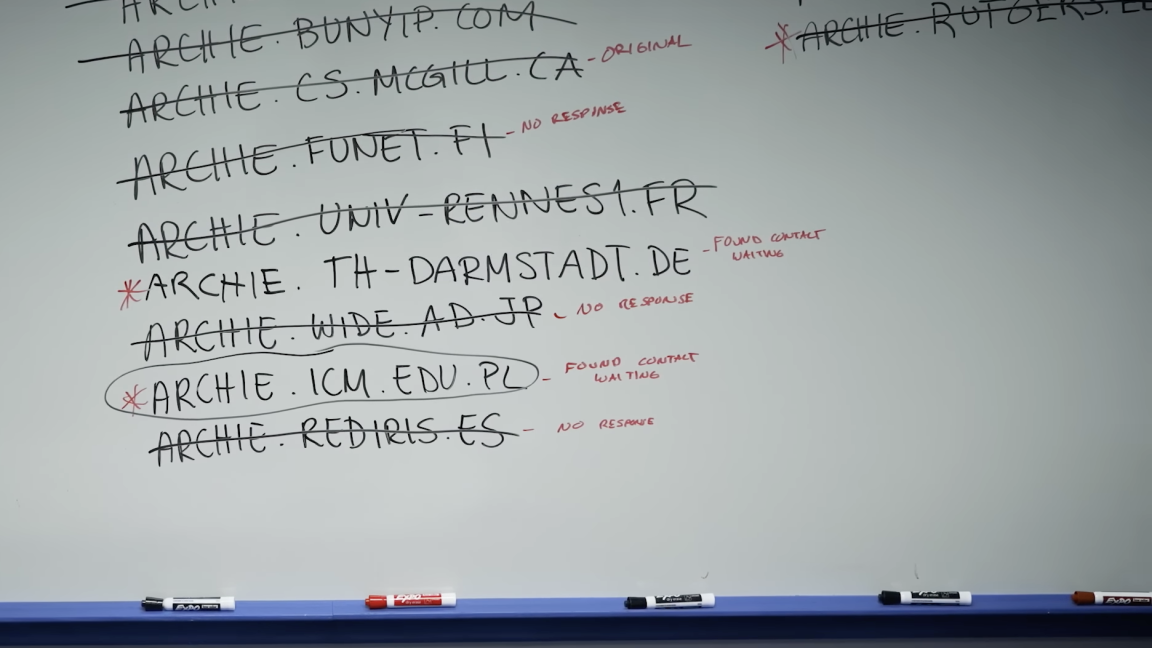 ARCHIE.BUNYIP.COM
ARCHIE.CS.MCGILL.CA - ORIGINAL
ARCHIE.FUNET.FI - NO RESPONSE
ARCHIE.UNIV-RENNES1.FR
*ARCHIE.TH-DARMSTADT.DE - FOUND CONTACT
WAITING
ARCHIE.WIDE.AD.JP - NO RESPONSE
*ARCHIE.ICM.EDU.PL - FOUND CONTACT
WAITING
ARCHIE.REDIRIS.ES - NO RESPONSE
*ARCHIE.RUTGERS.
EXPO